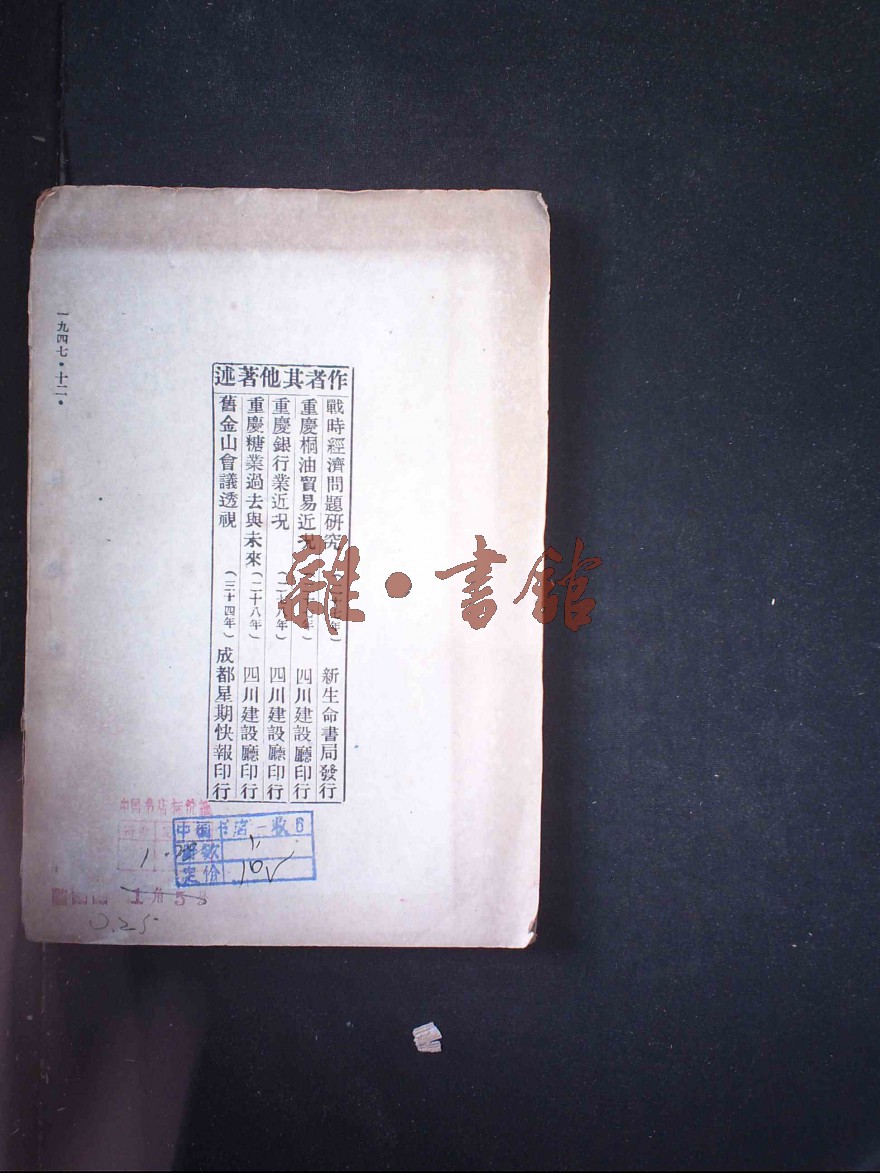 作者其他著述
戰時經濟問題研究 新生命書局發行
重慶桐油貿易近況 四川建設廳印行
重慶銀行業近況（二十八年）四川建設廳印行
重慶糖業過去與未來（二十八年）四川建設廳印行
舊金山會議透視（三十四年）成都星期快報印行
一九四七·十二·
雜·書館
中國书店
定价
0.25